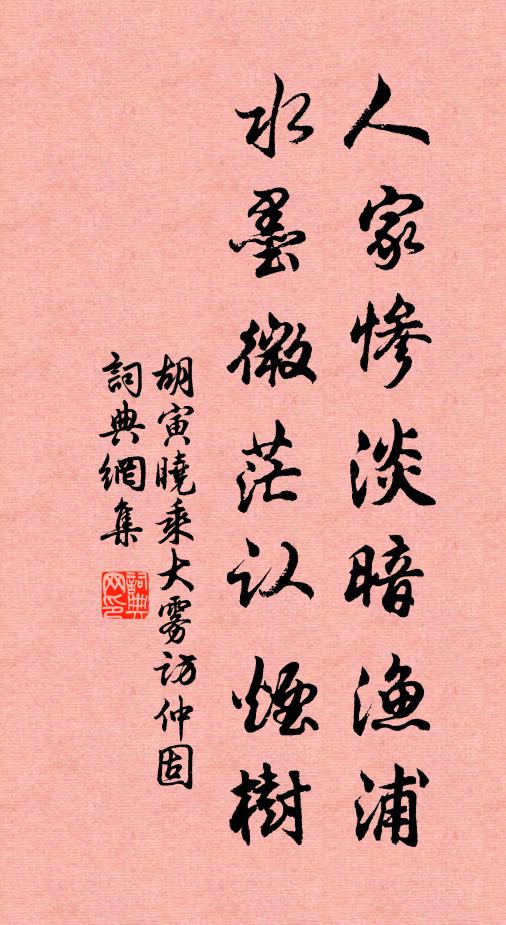 人家慘淡暗漁浦
水墨微茫认煙樹
胡寅曉乘大雾访仲固
詞典網集
詞典网印